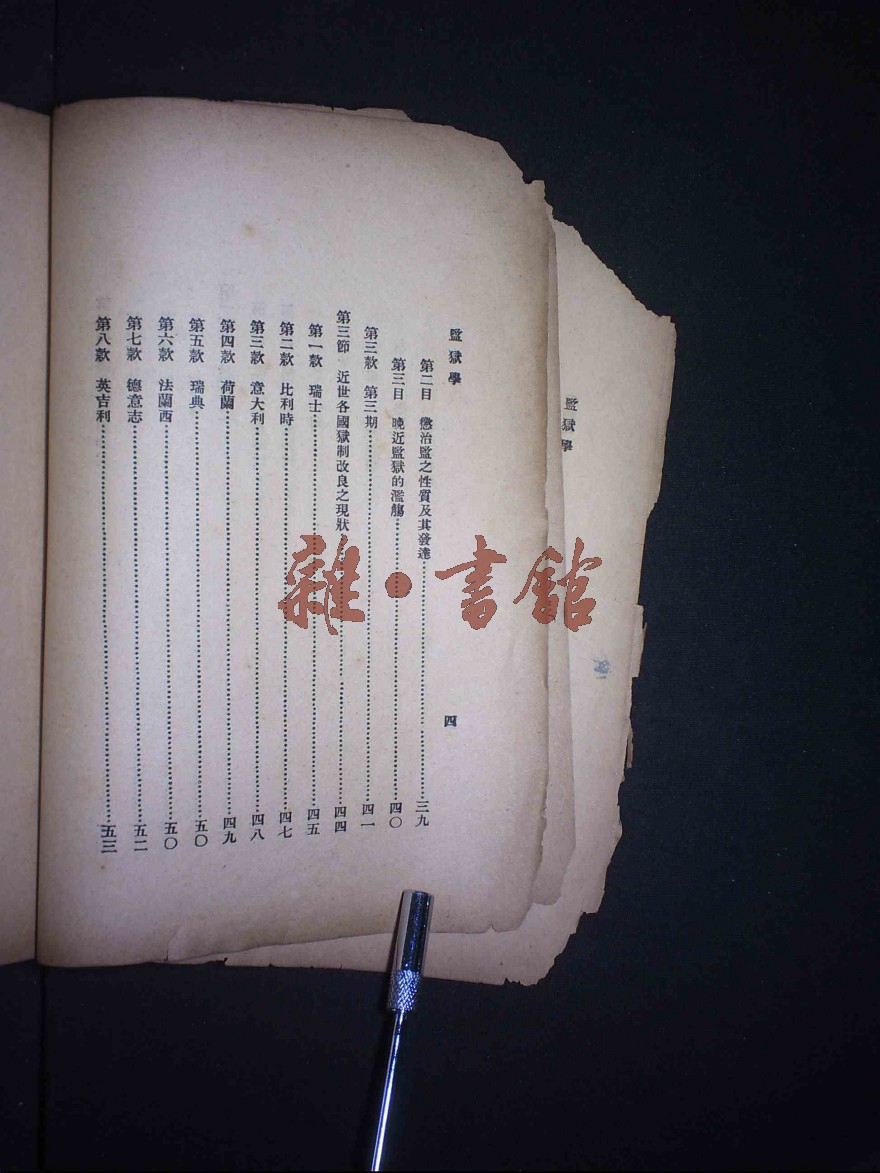 監獄學
四
第二目　懲治監之性質及其發達……三九
第三目　晚近監獄的濫觴……四〇
第三款　第三期……四一
第三節　近世各國獄制改良之現狀……四四
第一款　瑞士……四五
第二款　比利時……四七
第三款　意大利……四八
第四款　荷蘭……四九
第五款　瑞典……五〇
第六款　法蘭西……五〇
第七款　德意志……五二
第八款　英吉利……五三
監獄學
雜·書館